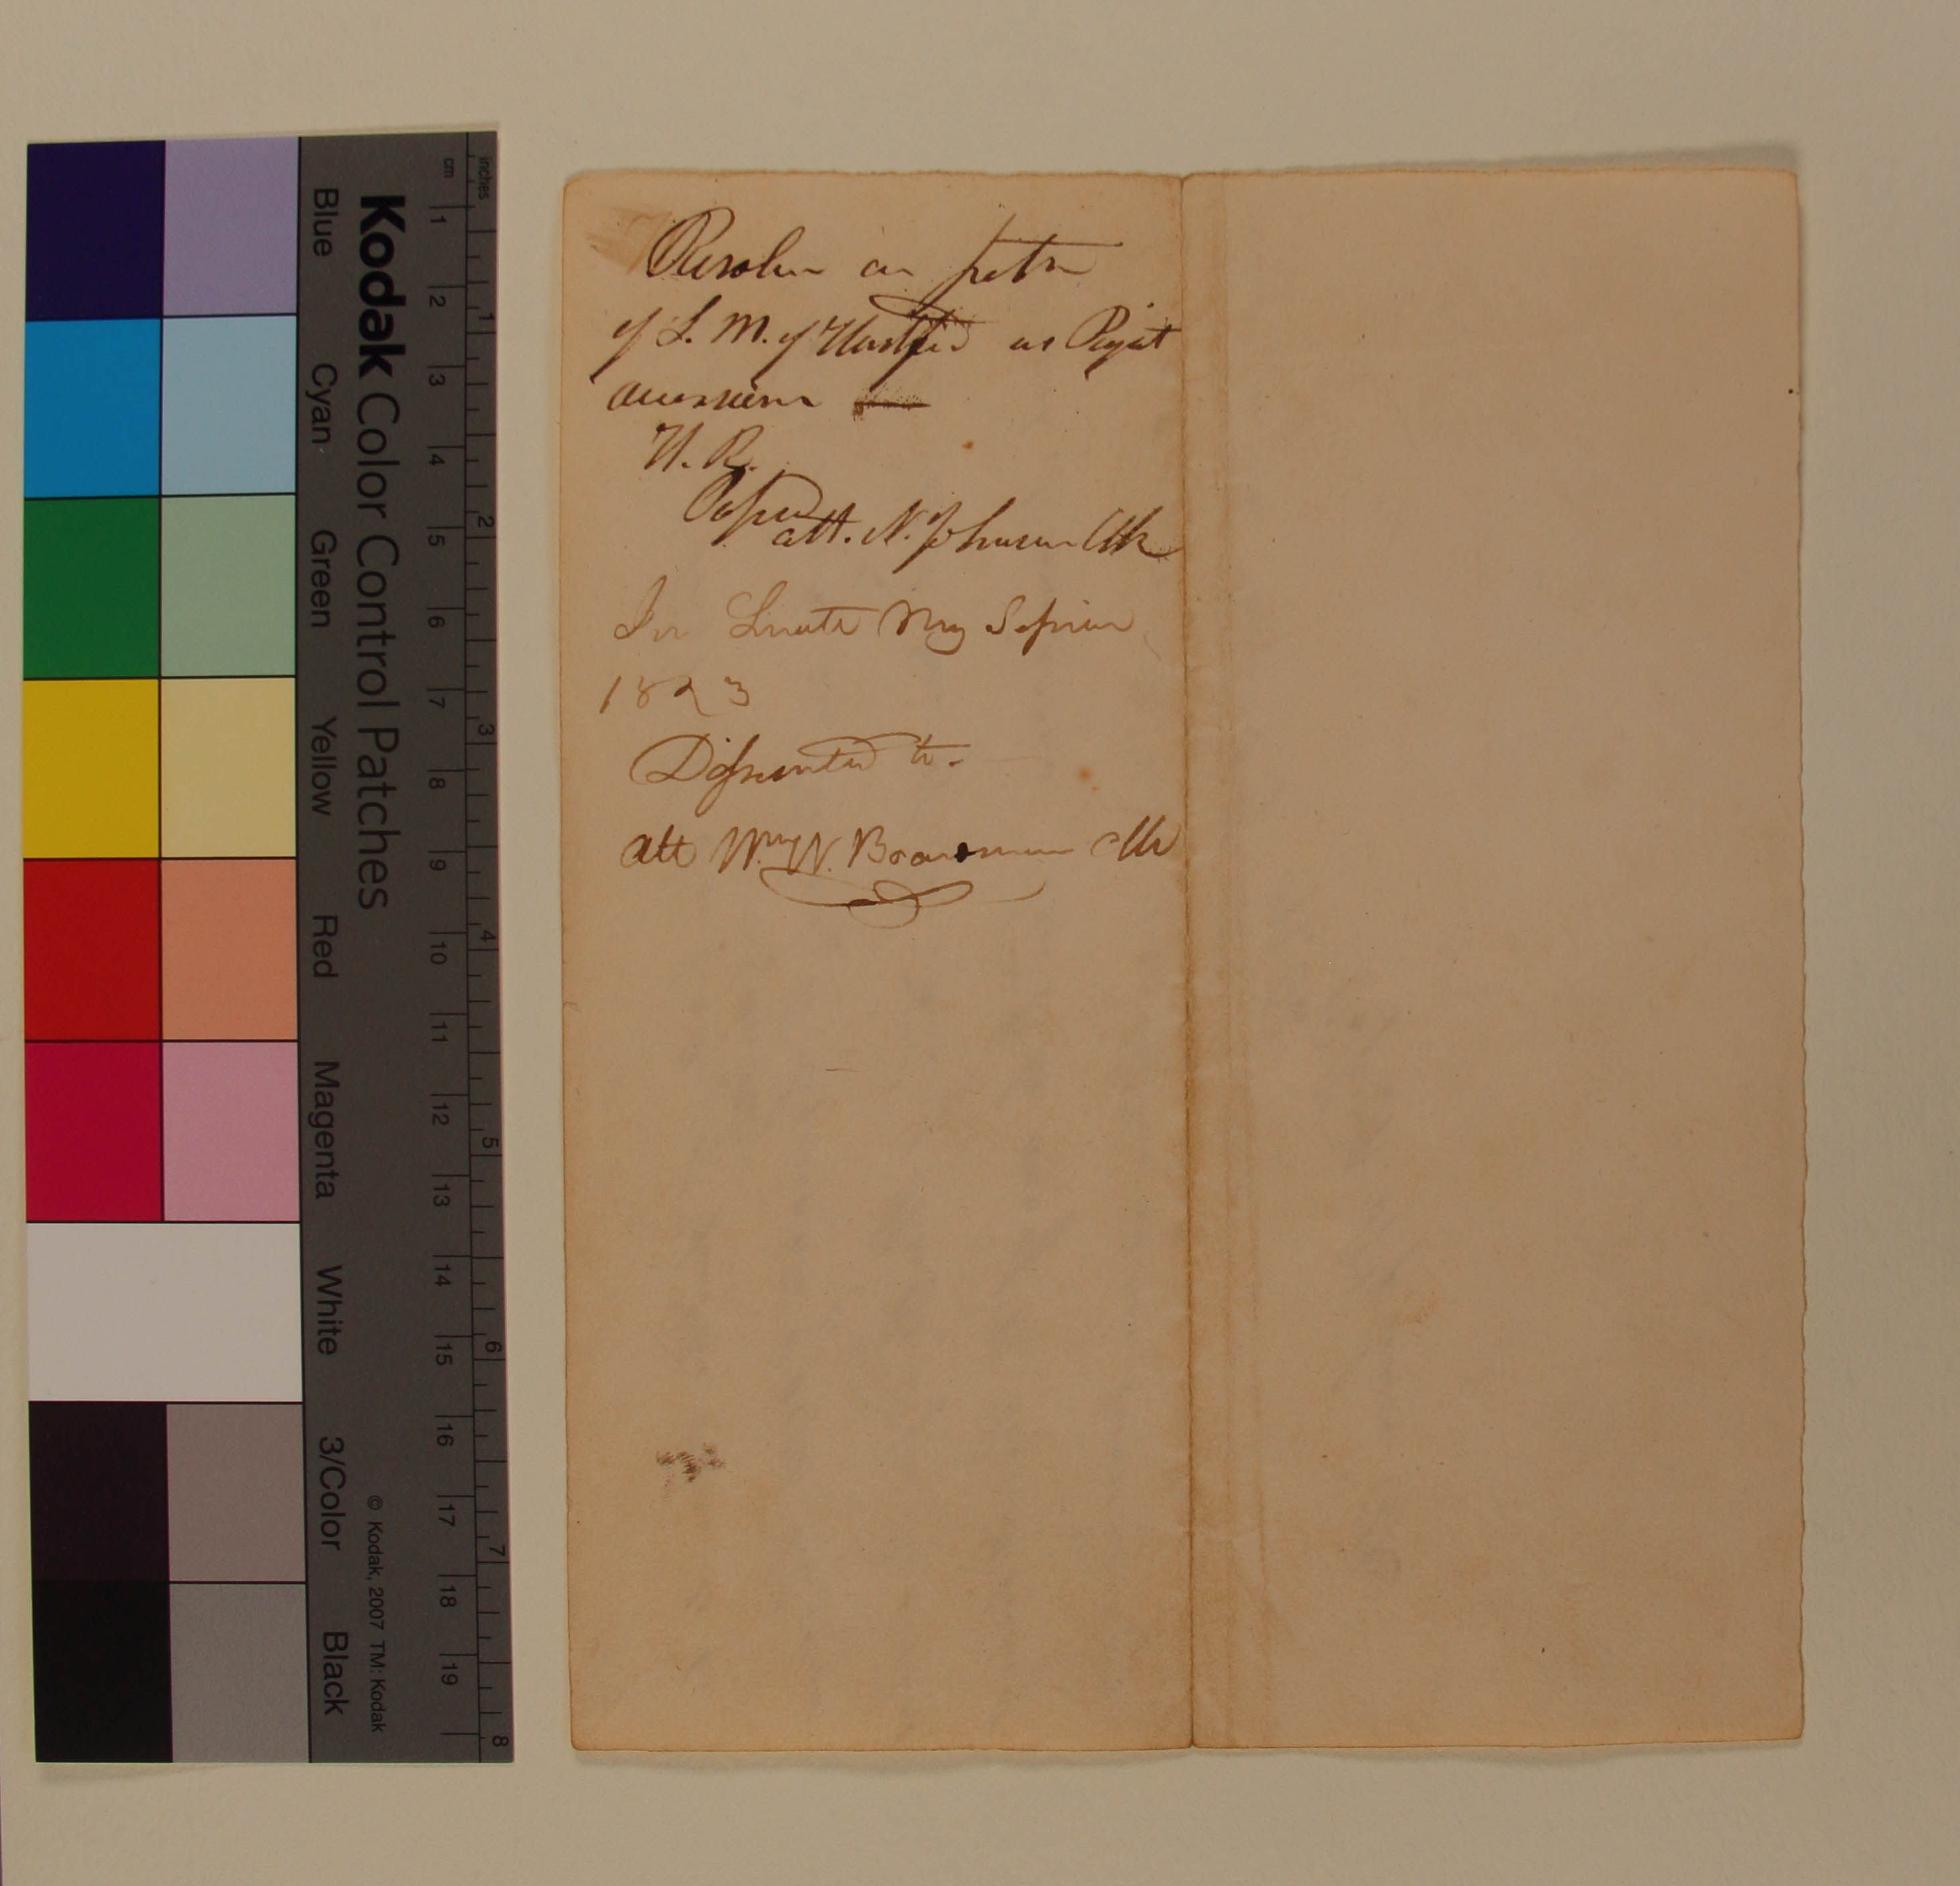 Resolve on petn
of L. M. of Hartford as
H. R.
Passed
att. N. Johnson Clk
In Senate May Session
1823
Dissented to.
Att Wm W. Boardman Clk
Kodak Color Control Patches
Blue Cyan Green Yellow Red Magenta White 3/Color Black
© Kodak, 2007 TM: Kodak
cm 1 2 3 4 5 6 7 8 9 10 11 12 13 14 15 16 17 18 19
inches 1 2 3 4 5 6 7 8